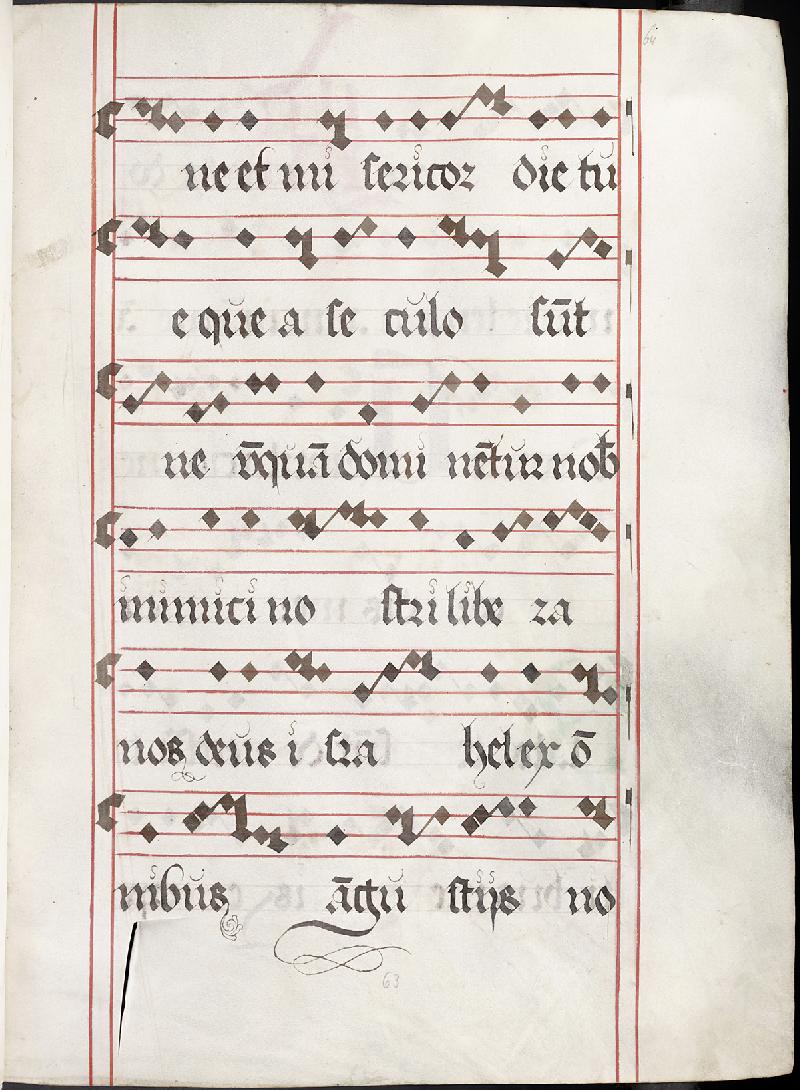 64
ne et mi sericor die tu
e que a se culo sūt
ne v̄quā domi nētur nob
inimici no stri libe ra
nos deus i sra hel ex o͞
nibus āgu stijs no
63